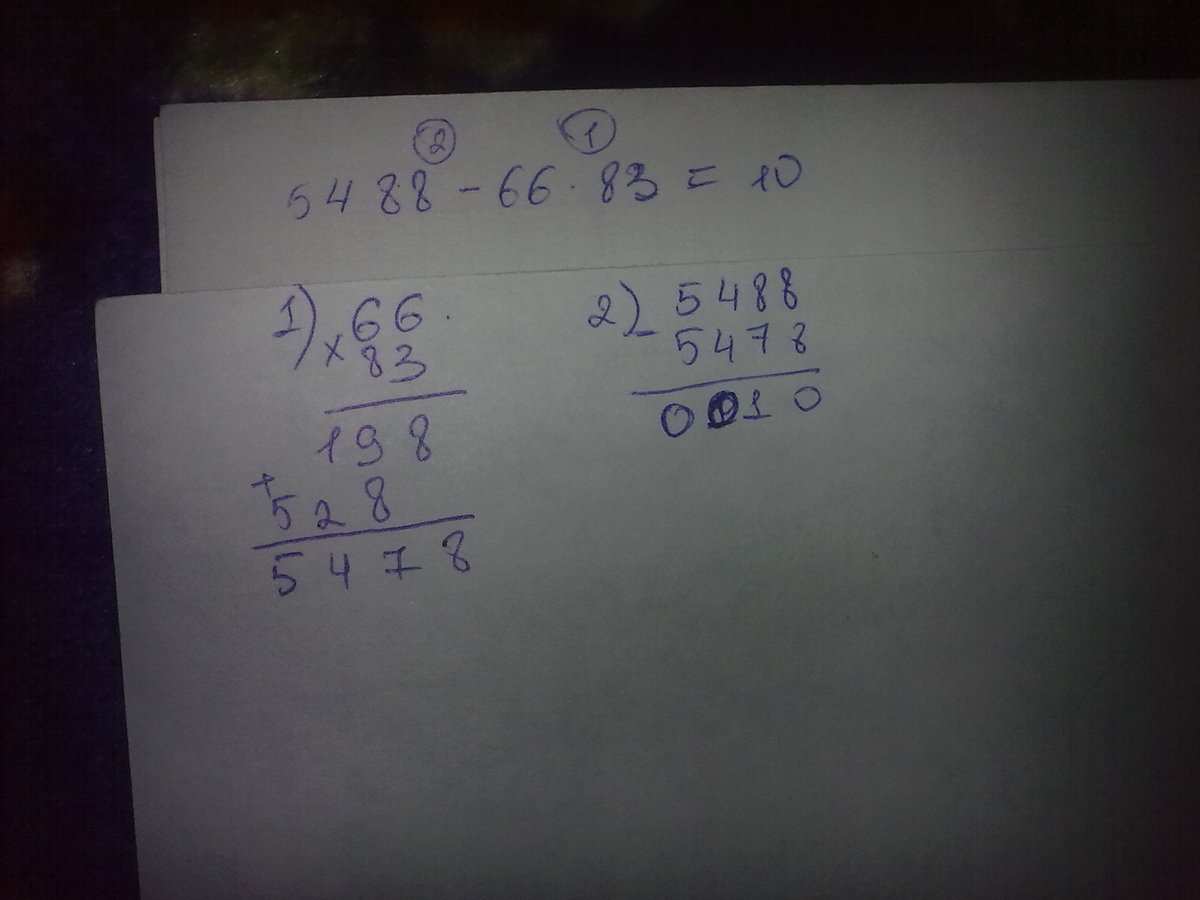 ② ①
5488 - 66 · 83 = 10
1) 66
× 83
198
+
528
5478
2) 5488
- 5478
0010